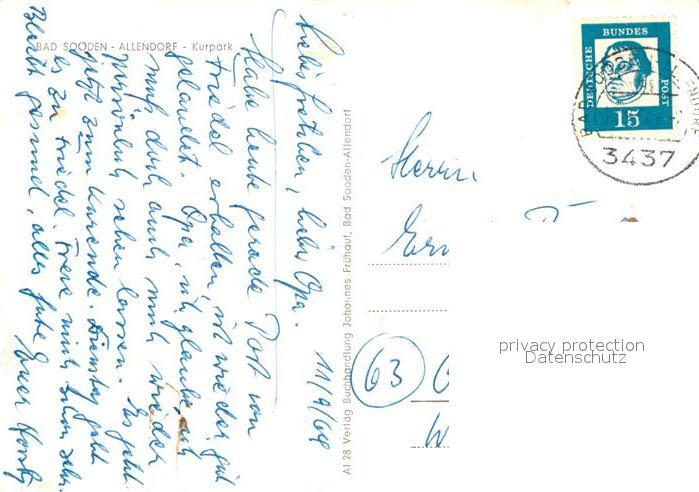 BAD SOODEN - ALLENDORF - Kurpark
11/9/64
Liebes Gretchen, lieber Opa.
Habe heute gerade Post von
Friedel erhalten, ist wieder gut
gelandet. Opa, ich glaube, ich
muß doch auch mich wieder
persönlich sehen lassen. Es geht
jetzt zum Kurende. Dienstag geht
es zu Friedel. Freue mich schon sehr.
Bleibt gesund, alles Gute
Euer
AI 28 Verlag Buchhandlung Johannes Frühauf, Bad Sooden-Allendorf
DEUTSCHE BUNDES POST
15
BAD SOODEN-ALLENDORF
3437
Herrn
63
privacy protection
Datenschutz